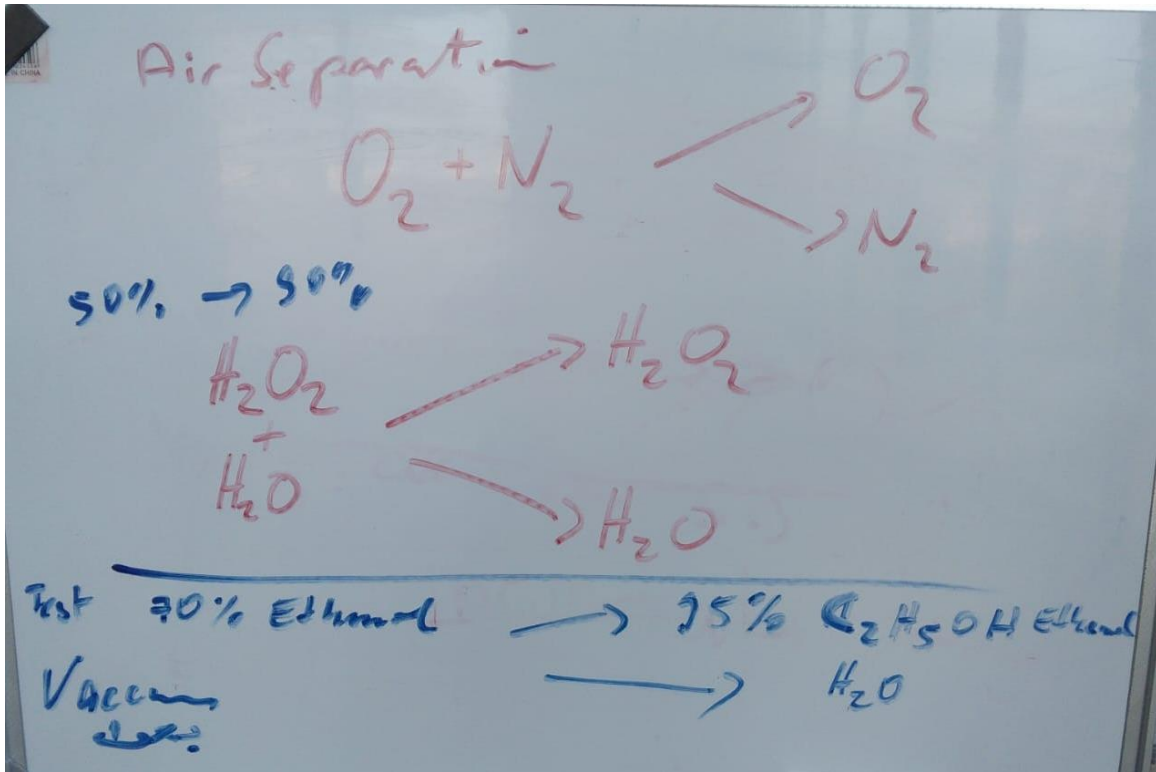 N CHINA
Air Separation
O₂ + N₂ → O₂
→ N₂
50% → 90%
H₂O₂ + H₂O → H₂O₂
→ H₂O
Test 70% Ethanol → 95% C₂H₅OH Ethanol
Vaccum → H₂O